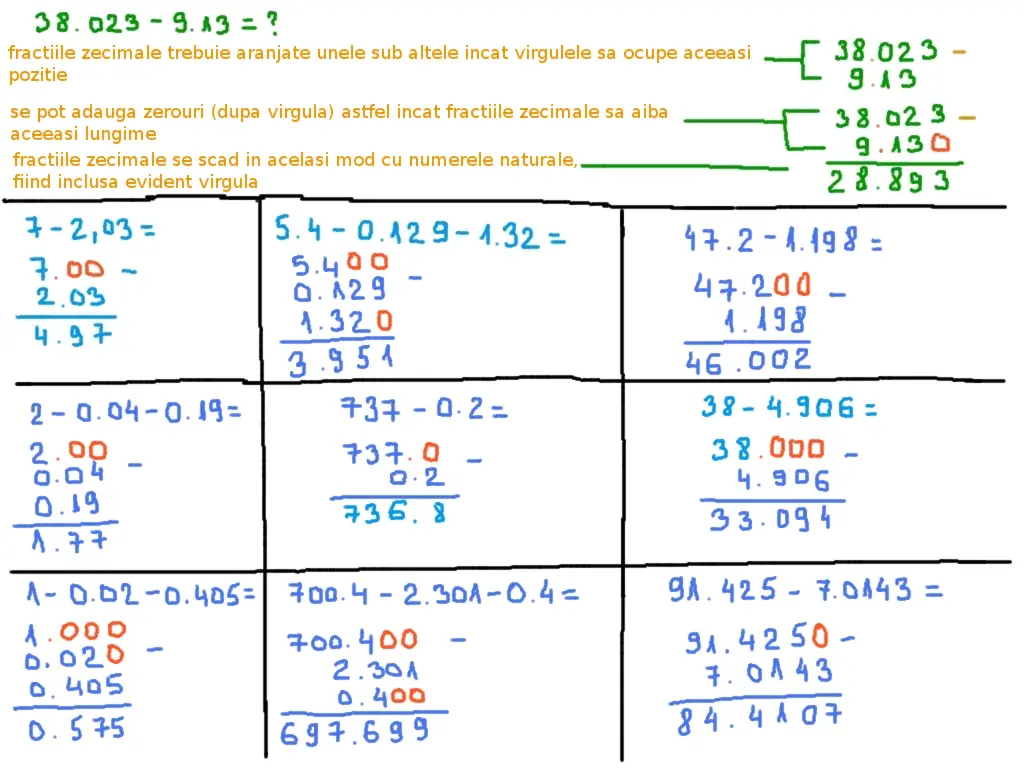 38.023 - 9.13 = ?
fractiile zecimale trebuie aranjate unele sub altele incat virgulele sa ocupe aceeasi
pozitie
38.023 -
9.13
se pot adauga zerouri (dupa virgula) astfel incat fractiile zecimale sa aiba
aceeasi lungime
38.023 -
9.130
fractiile zecimale se scad in acelasi mod cu numerele naturale,
fiind inclusa evident virgula
28.893
7 - 2,03 =
7.00 -
2.03
4.97
5.4 - 0.129 - 1.32 =
5.400 -
0.129
1.320
3.951
47.2 - 1.198 =
47.200 -
1.198
46.002
2 - 0.04 - 0.19 =
2.00 -
0.04
0.19
1.77
737 - 0.2 =
737.0 -
0.2
736.8
38 - 4.906 =
38.000 -
4.906
33.094
1 - 0.02 - 0.405 =
1.000 -
0.020
0.405
0.575
700.4 - 2.301 - 0.4 =
700.400 -
2.301
0.400
697.699
91.425 - 7.0143 =
91.4250 -
7.0143
84.4107